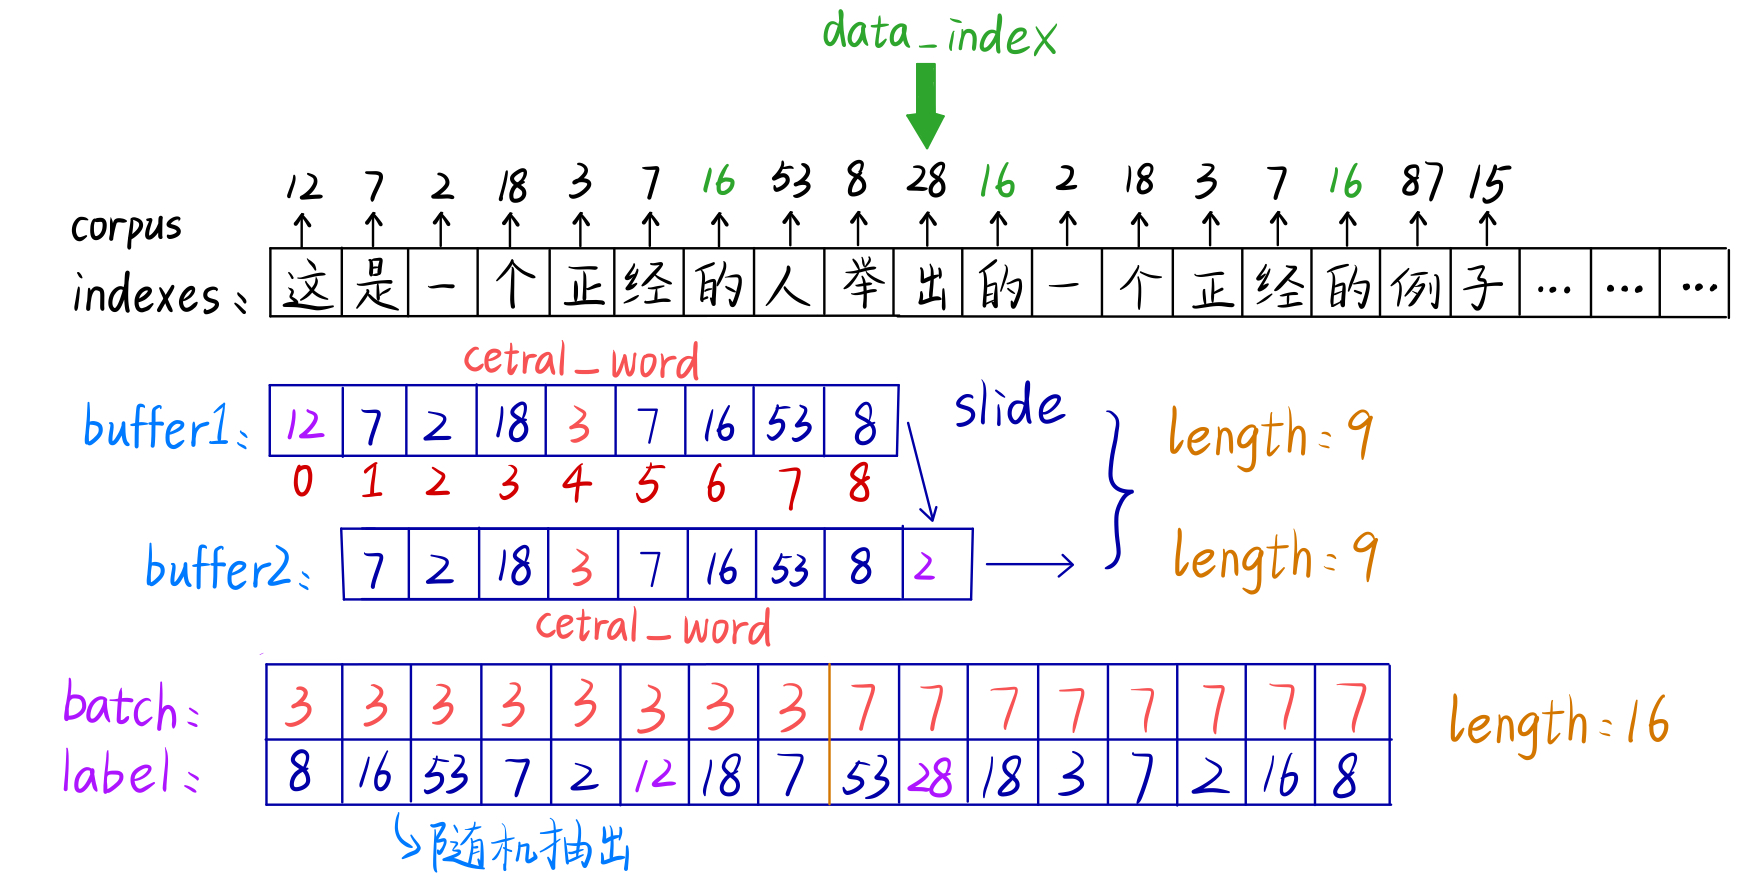 data_index
12 7 2 18 3 7 16 53 8 28 16 2 18 3 7 16 87 15
corpus
indexes: 这 是 一 个 正 经 的 人 举 出 的 一 个 正 经 的 例 子 ... ... ...
cetral_word
buffer1: 12 7 2 18 3 7 16 53 8 slide length: 9
0 1 2 3 4 5 6 7 8
buffer2: 7 2 18 3 7 16 53 8 2 length: 9
cetral_word
batch: 3 3 3 3 3 3 3 3 7 7 7 7 7 7 7 7 length: 16
label: 8 16 53 7 2 12 18 7 53 28 18 3 7 2 16 8
随机抽出